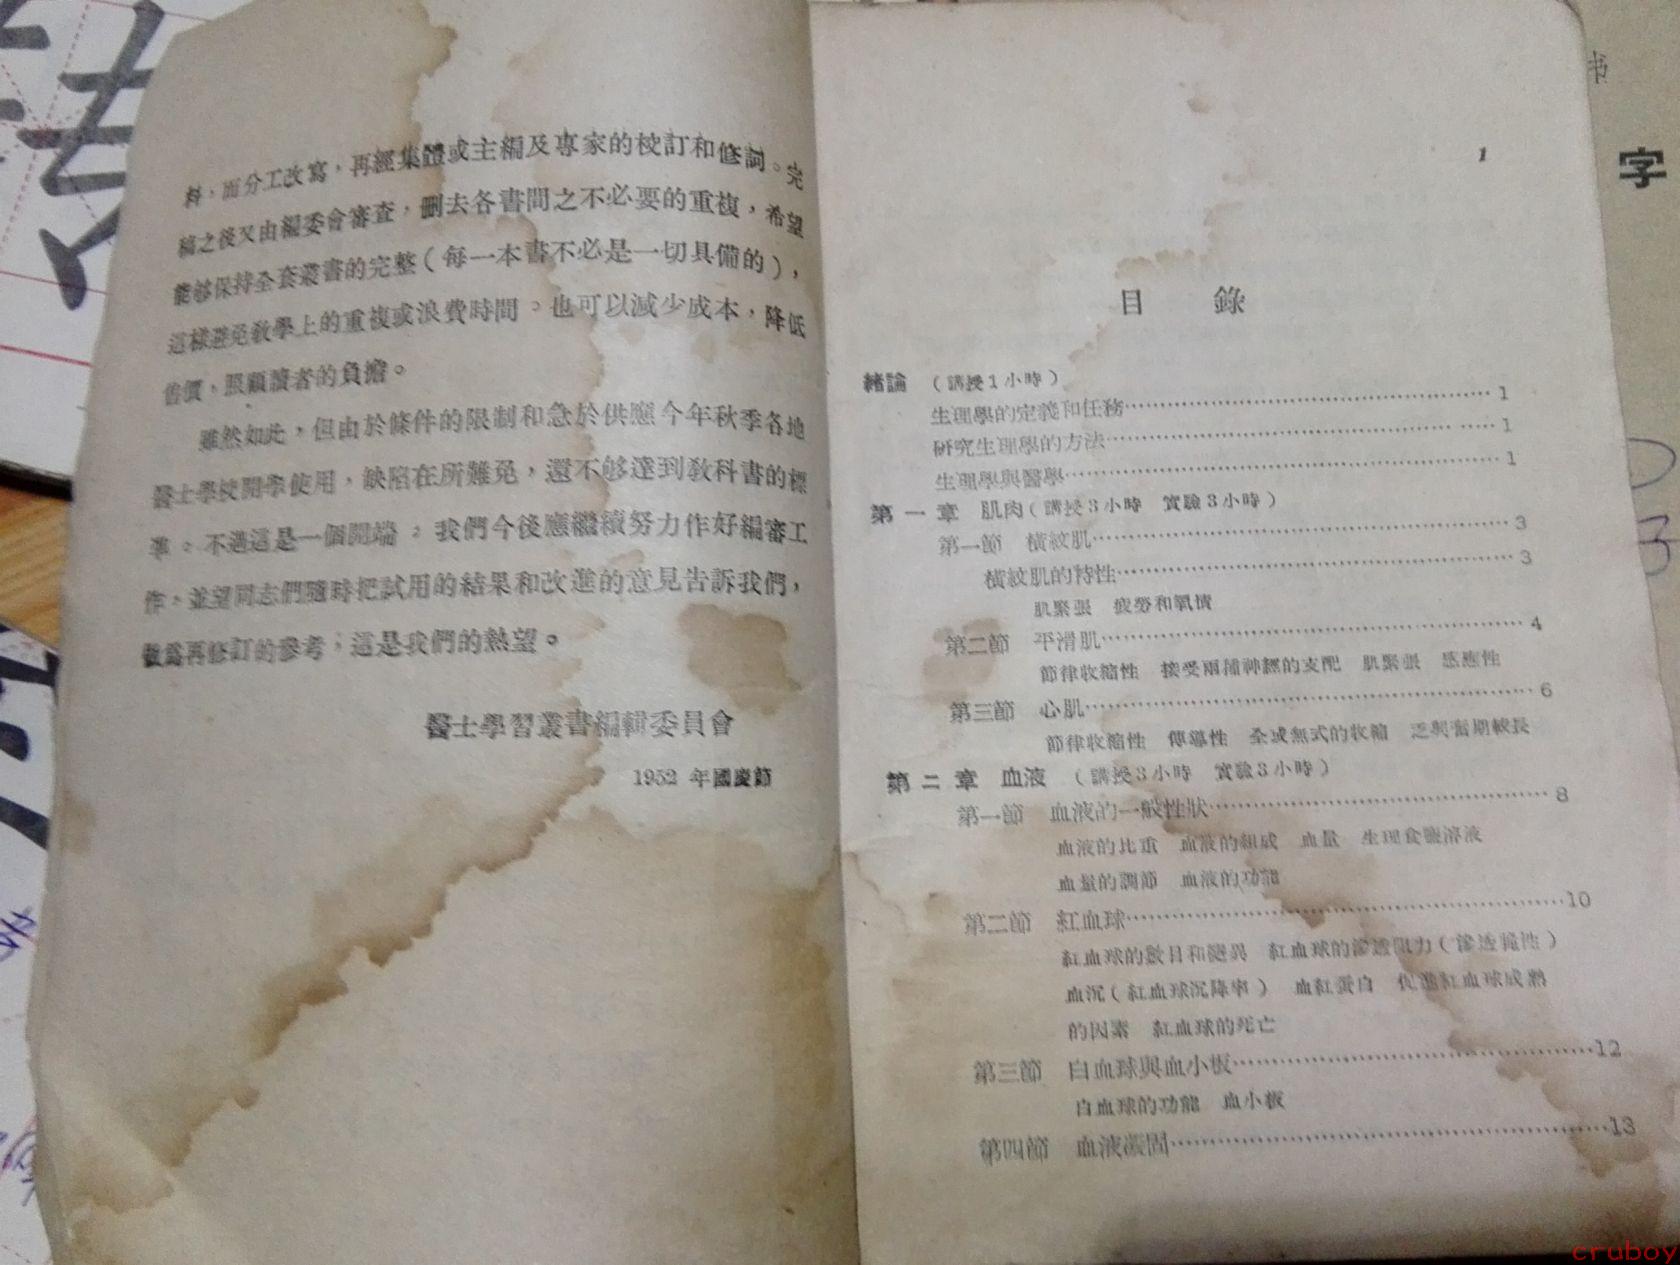 料，而分工改寫，再經集體或主編及專家的校訂和修詞。完
稿之後又由編委會審查，刪去各書間之不必要的重複，希望
能够保持全套叢書的完整（每一本書不必是一切具備的），
這樣避免教學上的重複或浪費時間。也可以減少成本，降低
售價，照顧讀者的負擔。
雖然如此，但由於條件的限制和急於供應今年秋季各地
醫士學校開學使用，缺陷在所難免，還不够達到教科書的標
準。不過這是一個開端。我們今後應繼續努力作好編審工
作。並望同志們隨時把試用的結果和改進的意見告訴我們，
做爲再修訂的參考，這是我們的熱望。
醫士學習叢書編輯委員會
1952 年國慶節
1
目 錄
緒論 （講授1小時）
生理學的定義和任務……………1
研究生理學的方法……………1
生理學與醫學……………1
第一章 肌肉（講授3小時 實驗3小時）
第一節 橫紋肌……………3
橫紋肌的特性……………3
肌緊張 疲勞和氧債
第二節 平滑肌……………4
節律收縮性 接受兩種神經的支配 肌緊張 感應性
第三節 心肌……………6
節律收縮性 傳導性 全或無式的收縮 乏興奮期較長
第二章 血液 （講授3小時 實驗3小時）
第一節 血液的一般性狀……………8
血液的比重 血液的組成 血量 生理食鹽溶液
血量的調節 血液的功能
第二節 紅血球……………10
紅血球的數目和變異 紅血球的滲透阻力（滲透脆性）
血沉（紅血球沉降率） 血紅蛋白 促進紅血球成熟
的因素 紅血球的死亡
第三節 白血球與血小板……………12
白血球的功能 血小板
第四節 血液凝固……………13
书
字
cruboy